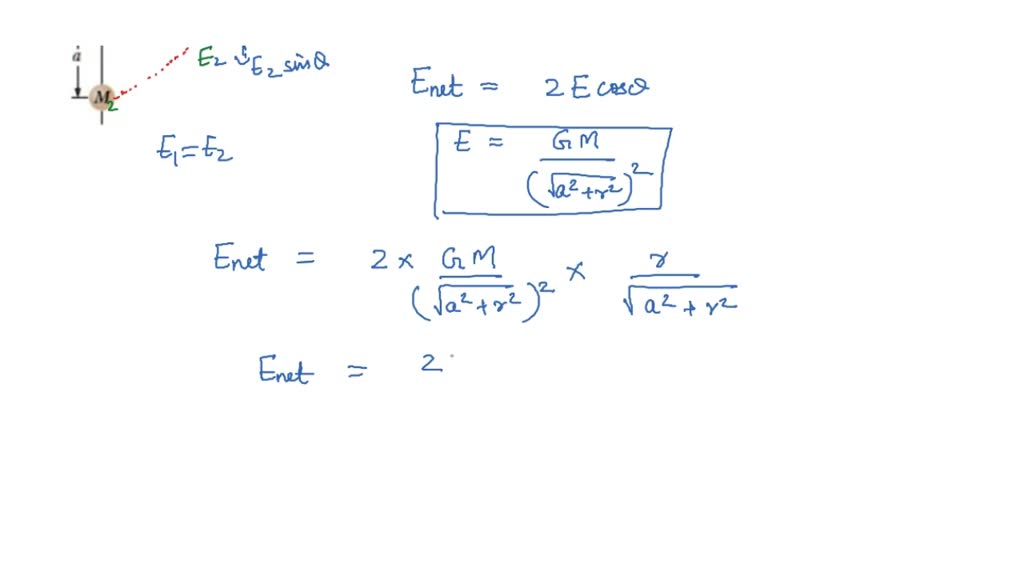 a
M2 E2 & E2 sinθ
Enet = 2 E cosθ
E1 = E2
E = GM / (√a²+r²)²
Enet = 2 × GM / (√a²+r²)² × r / √a²+r²
Enet = 2